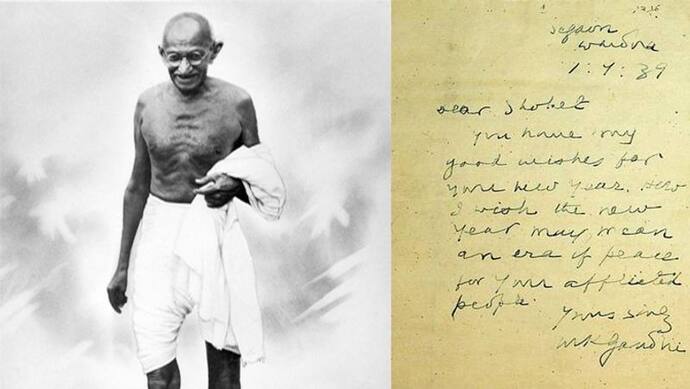 Segaon
Wardha
1:9:39
Dear Shohet
You have my
good wishes for
your new year. How
I wish the new
year may mean
an era of peace
for your afflicted
people.
Yours
MKGandhi